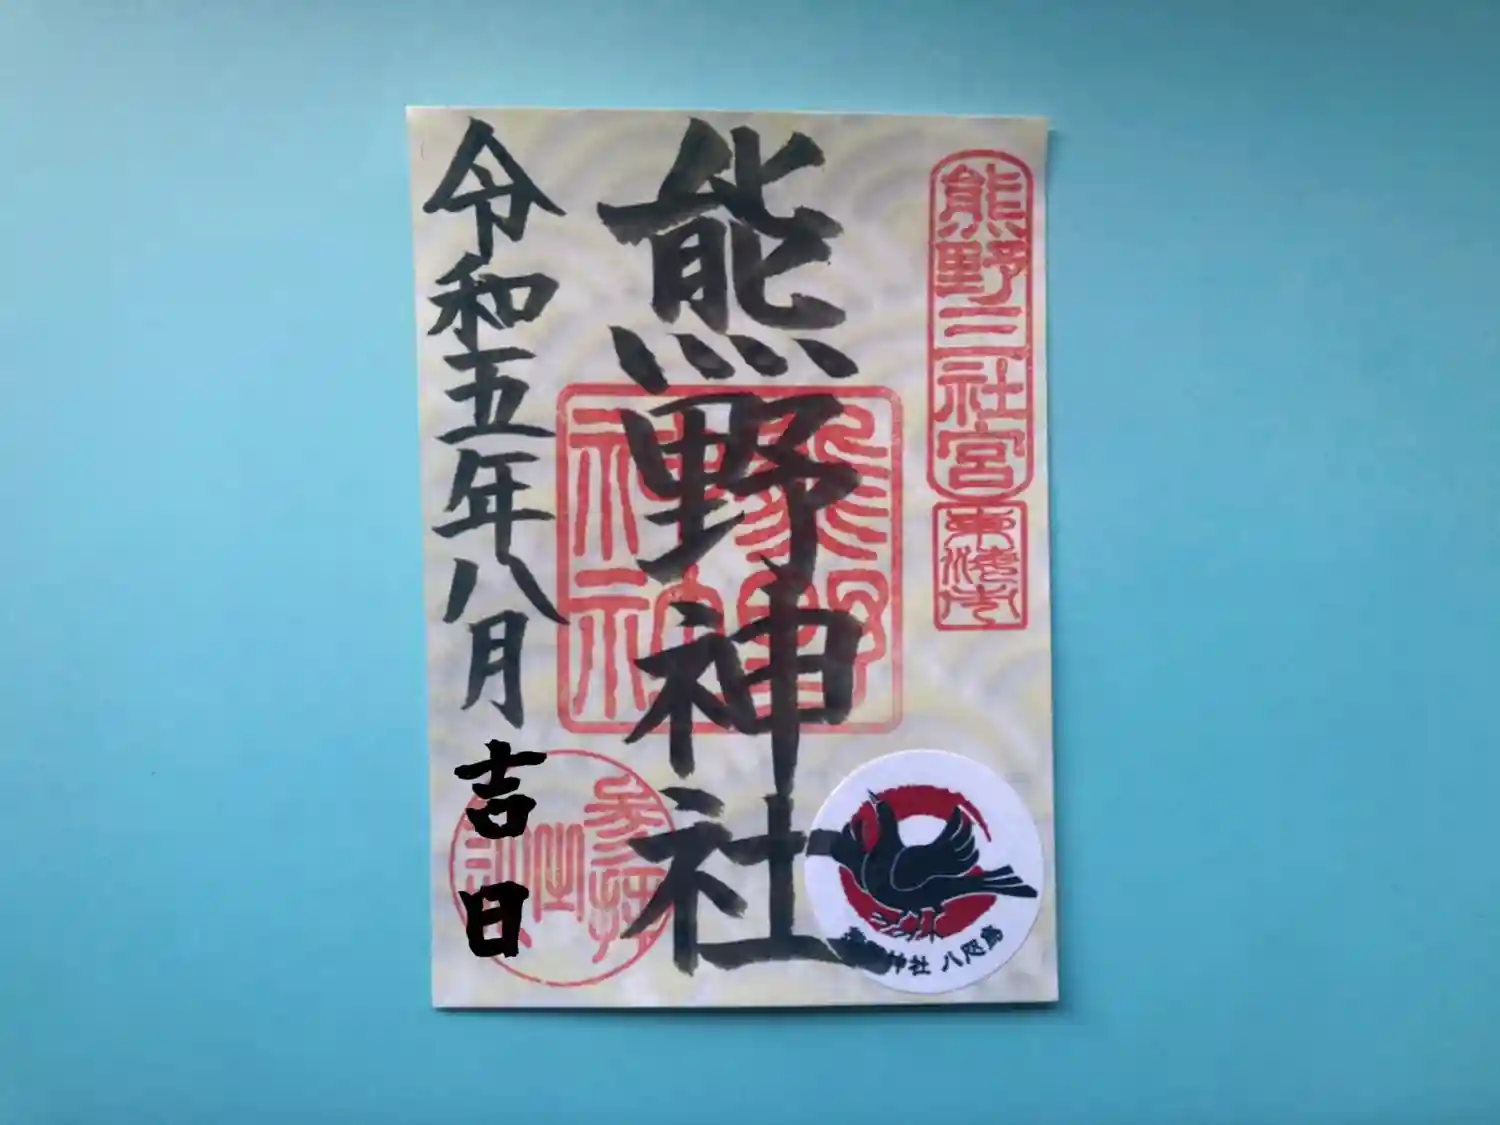 熊野三社宮
東海市
熊野神社
熊野
神社
令和五年八月吉日
参拝
神社 八咫烏